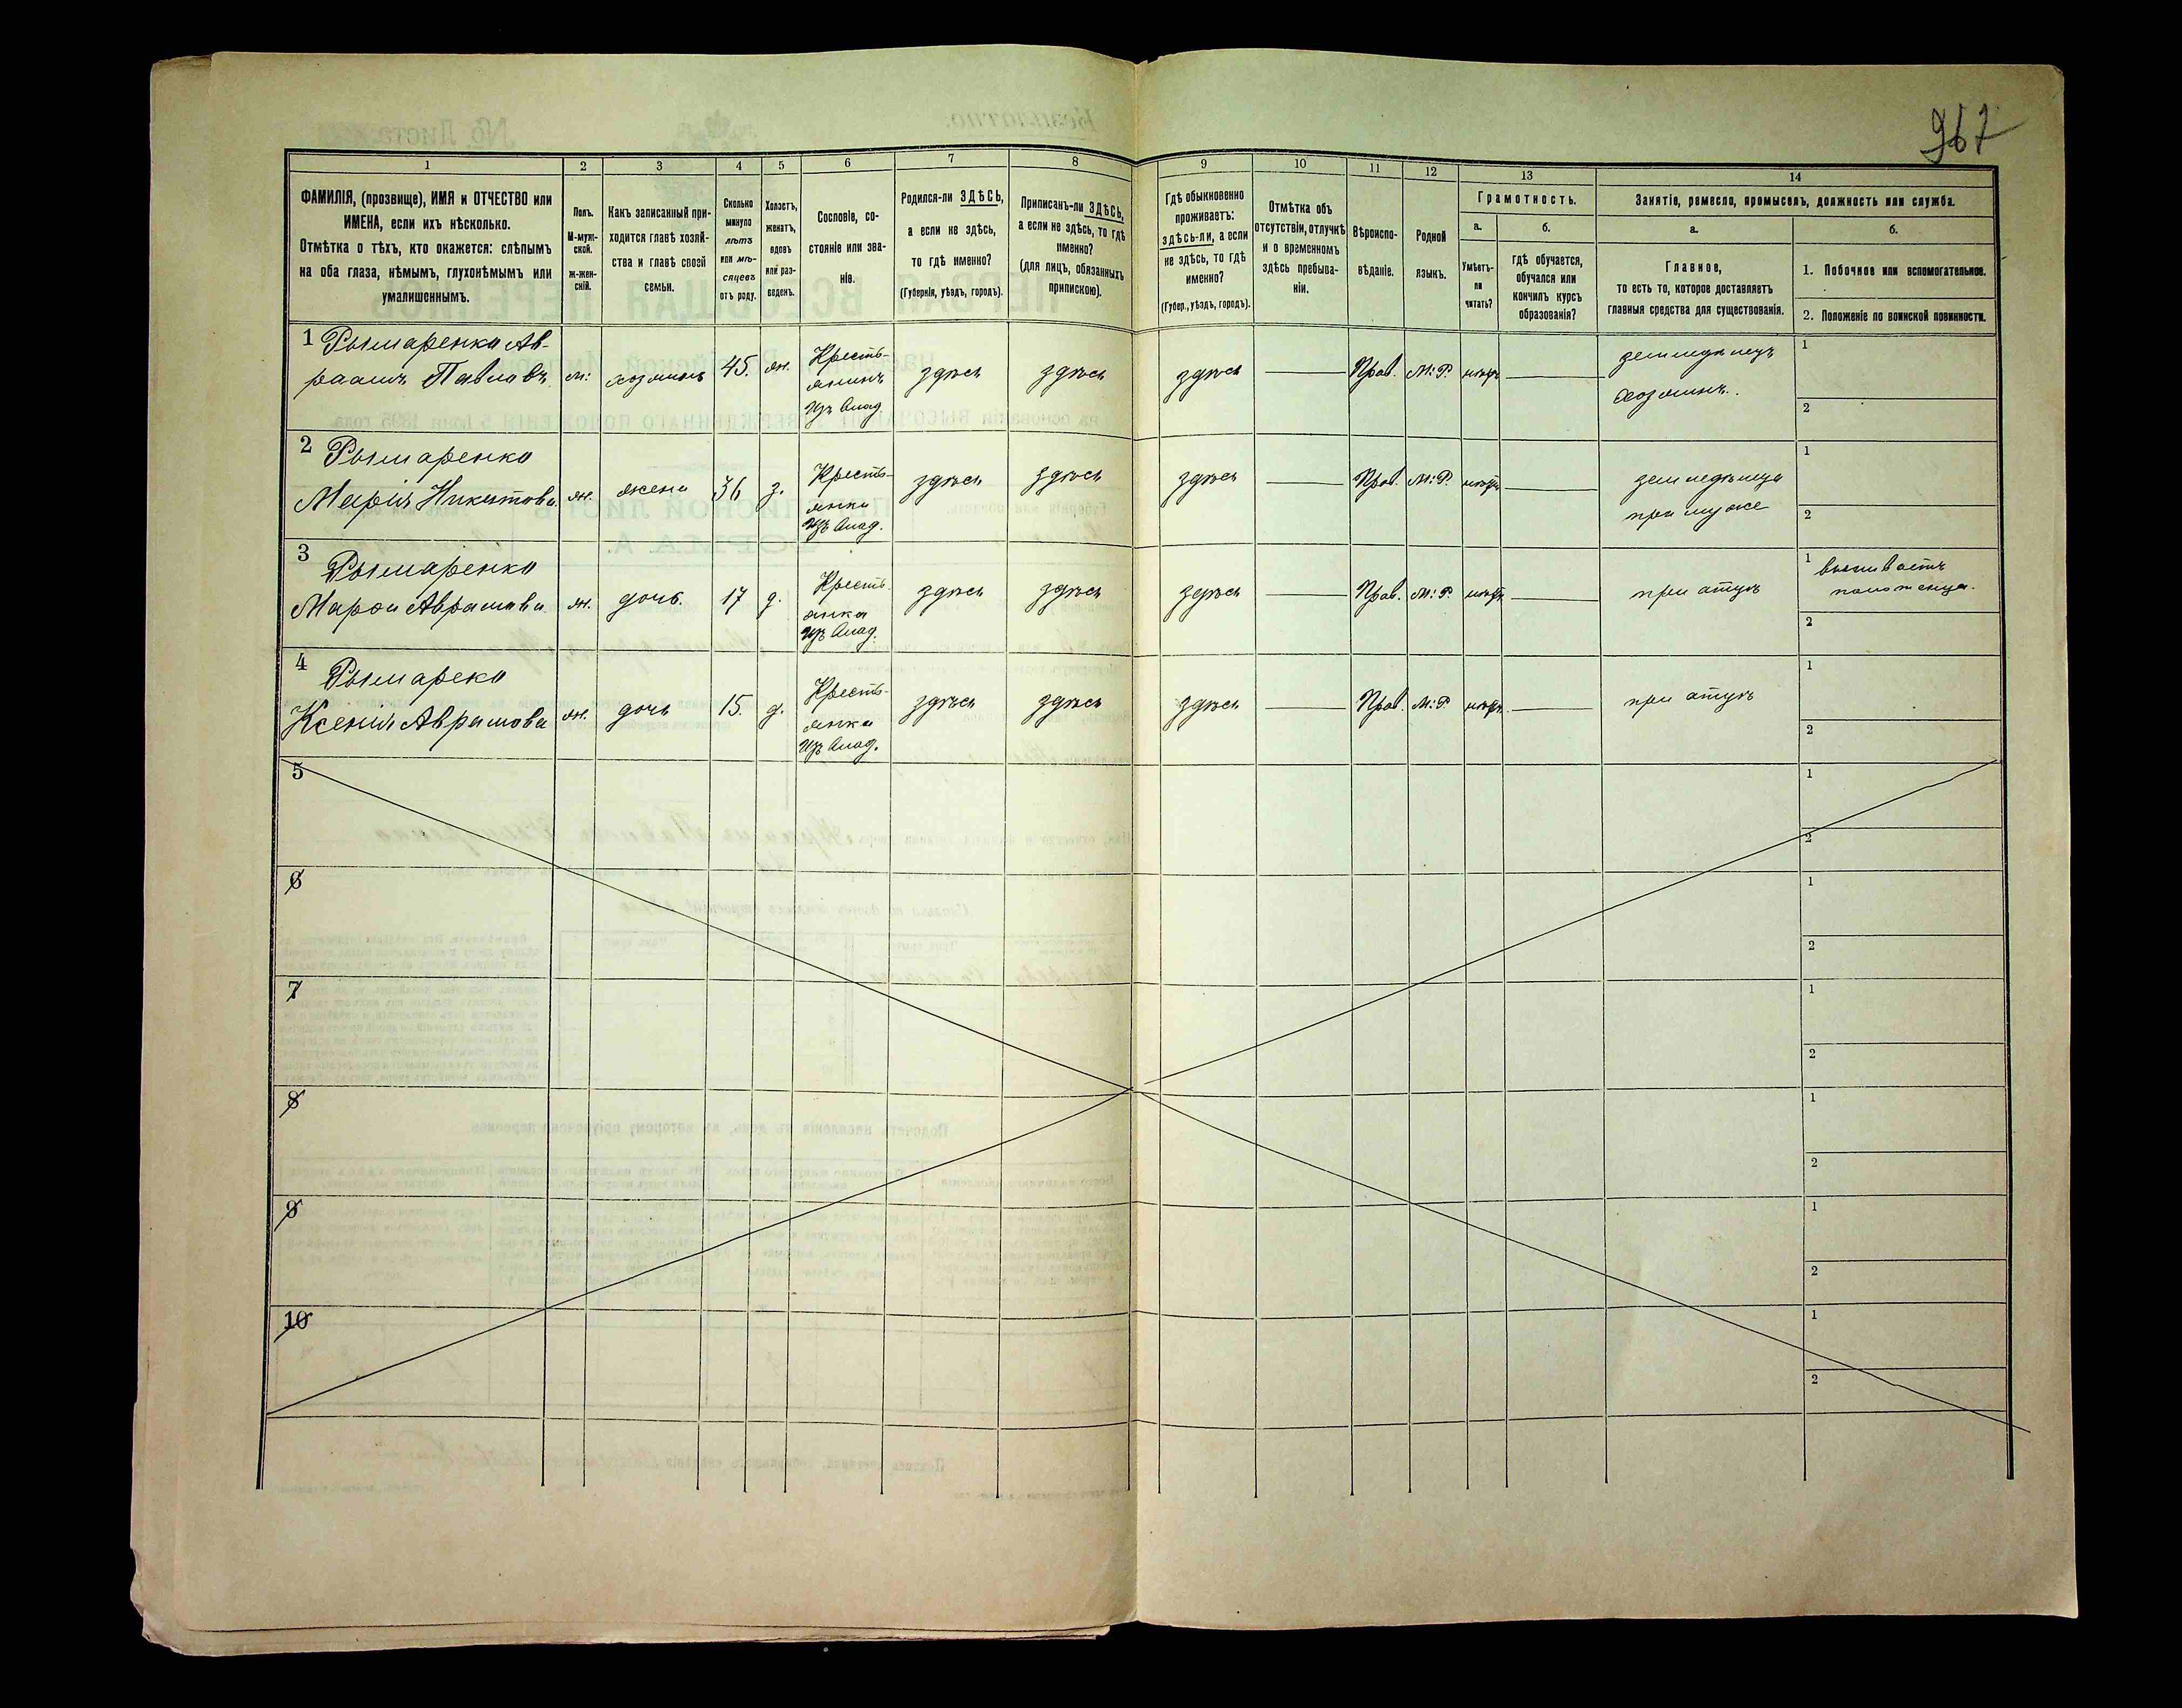 967
1
2
3
4
5
6
7
8
9
10
11
12
13
14
ФАМИЛІЯ, (прозвище), ИМЯ и ОТЧЕСТВО или
ИМЕНА, если ихъ нѣсколько.
Отмѣтка о тѣхъ, кто окажется: слѣпымъ
на оба глаза, нѣмымъ, глухонѣмымъ или
умалишеннымъ.
Полъ.
М-муж-
ской.
ж-жен-
скій.
Какъ записанный при-
ходится главѣ хозяй-
ства и главѣ своей
семьи.
Сколько
минуло
лѣтъ
или мѣ-
сяцевъ
отъ роду.
Холостъ,
женатъ,
вдовъ
или раз-
веденъ.
Сословіе, со-
стояніе или зва-
ніе.
Родился-ли ЗДѢСЬ,
а если не здѣсь,
то гдѣ именно?
(Губернія, уѣздъ, городъ).
Приписанъ-ли ЗДѢСЬ,
а если не здѣсь, то гдѣ
именно?
(для лицъ, обязанныхъ
припискою).
Гдѣ обыкновенно
проживаетъ:
здѣсь-ли, а если
не здѣсь, то гдѣ
именно?
(Губер., уѣздъ, городъ).
Отмѣтка объ
отсутствіи, отлучкѣ
и о временномъ
здѣсь пребыва-
ніи.
Вѣроиспо-
вѣданіе.
Родной
языкъ.
Грамотность.
а.
Умѣетъ-
ли
читать?
б.
гдѣ обучается,
обучался или
кончилъ курсъ
образованія?
Занятіе, ремесло, промыселъ, должность или служба.
а.
Главное,
то есть то, которое доставляетъ
главныя средства для существованія.
б.
1. Побочное или вспомогательное.
2. Положеніе по воинской повинности.
1 Рымаренко Ав-
раамъ Павловъ м. хозяинъ 45. ж. Кресть-
янинъ
изъ влад. здѣсь здѣсь здѣсь Прав. М.Р. нѣтъ земледѣлецъ
хозяинъ. 1
2
2 Рымаренко
Марія Никитова ж. жена 36 з. Кресть-
янка
изъ влад. здѣсь здѣсь здѣсь Прав. М.Р. нѣтъ земледѣлица
при мужѣ 1
2
3 Рымаренко
Марфа Аврамова ж. дочь. 17 д. Кресть-
янка
изъ влад. здѣсь здѣсь здѣсь Прав. М.Р. нѣтъ при отцѣ 1 вышиваетъ
полотенца.
2
4 Рымареко
Ксенія Аврамова ж. дочь 15. д. Кресть-
янка
изъ влад. здѣсь здѣсь здѣсь Прав. М.Р. нѣтъ при отцѣ 1
2
5 1
2
6 1
2
7 1
2
8 1
2
9 1
2
10 1
2